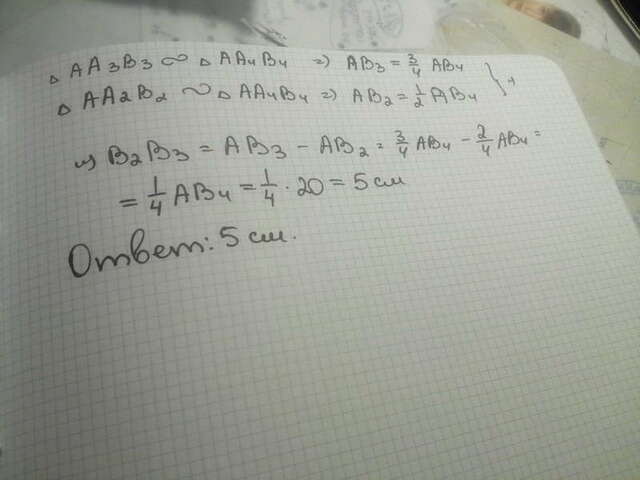 △ AA₃B₃ ∾ △ AA₄B₄ => AB₃ = 3/4 AB₄
△ AA₂B₂ ∾ △ AA₄B₄ => AB₂ = 1/2 AB₄
=> B₂B₃ = AB₃ - AB₂ = 3/4 AB₄ - 2/4 AB₄ =
= 1/4 AB₄ = 1/4 · 20 = 5 см
Ответ: 5 см.